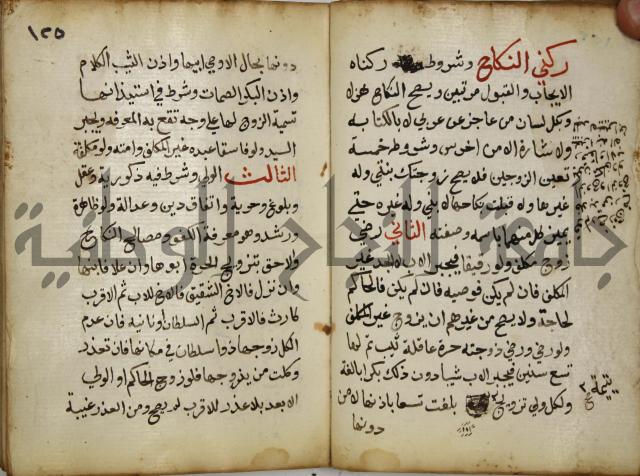 ركني النكاح وشروطه ركناه
الايجاب والقبول مرتبين ويصح النكاح هزلا
وبكل لسان من عاجز عن عربي لا بالكتابة
ولا اشارة الا من اخرس وشروطه خمسة
تعيين الزوجين فلا يصح زوجتك بنتي وله
غيرها ولا قبلت نكاحها لابني وله غيره حتى
يميز كل منهما باسمه وصفته الثاني رضى
زوج مكلف ولو رقيقا فيجبر الاب لا الجد غير
المكلف فان لم يكن فوصيه فان لم يكن فالحاكم
لحاجة ولا يصح من غيرهم ان يزوج غير المكلف
ولو رضي ورضى زوجة حرة عاقلة ثيب تم لها
تسع سنين فيجبر الاب ثيبا دون ذلك وبكرا بالغة
ولكل ولي تزويج بلغت تسعا باذنها لا من
دونها
يتيمة
١٣٥
دونها بحال الا وصي ابيها واذن الثيب الكلام
واذن البكر الصمات وشرط في استيذانها
تسمية الزوج لها على وجه تقع به المعرفة ويجبر
السيد ولو فاسقا عبده غير المكلف وامته ولو مكلفة
الثالث الولي وشرط فيه ذكورية وعقل
وبلوغ وحرية واتفاق دين وعدالة ولو ظاهرة
ورشد وهو معرفة الكفؤ ومصالح النكاح
والاحق بتزويج الحرة ابوها وان علا فابنها
وان نزل فالاخ الشقيق فالاخ للاب ثم الاقرب
كارث فالاقرب ثم السلطان او نائبه فان عدم
الكل زوجها ذو سلطان في مكانها فان تعذر
وكلت من يزوجها فلو زوج الحاكم او الولي
الابعد بلا عذر للاقرب لم يصح ومن العذر غيبة
جامعة النجاح الوطنية